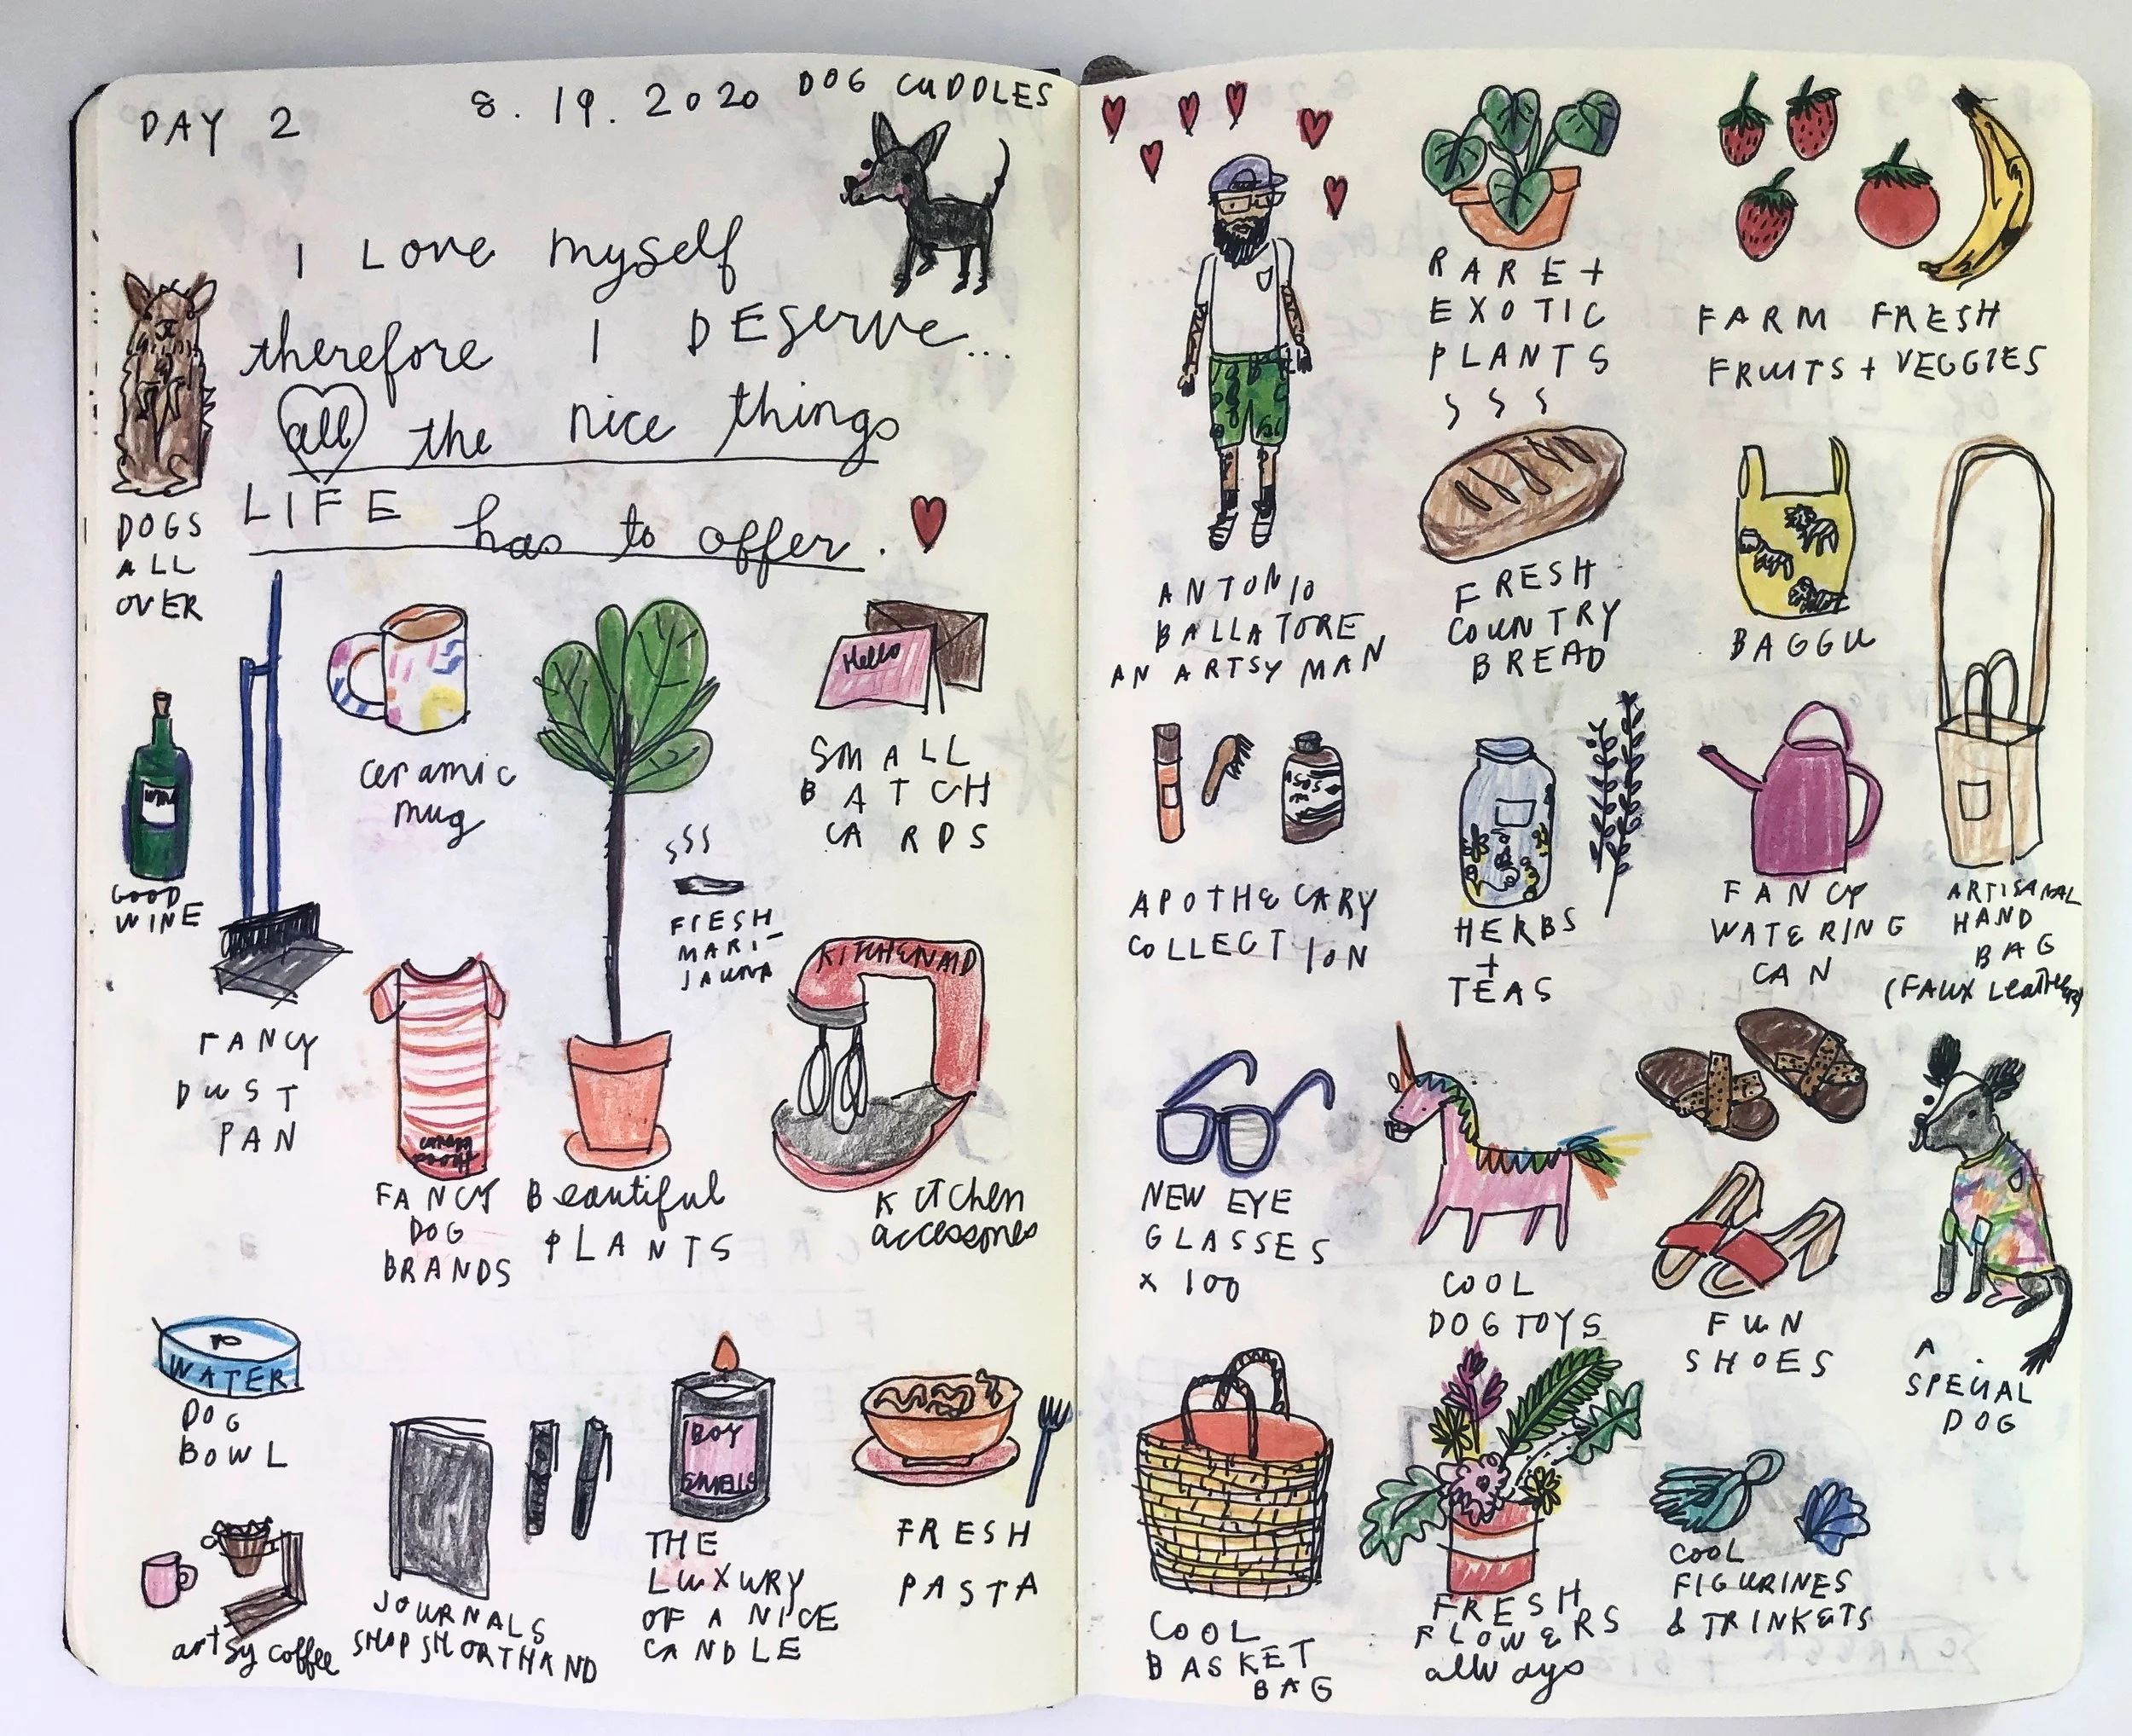 DAY 2
8.19.2020
DOG CUDDLES
I LOVE myself
therefore I DESERVE...
all the nice things
LIFE has to offer.
DOGS
ALL
OVER
GOOD
WINE
FANCY
DUST
PAN
ceramic
mug
Hello
SMALL
BATCH
CARDS
FRESH
MARI-
JAUNA
KITCHENAID
Kitchen
accessories
FANCY
DOG
BRANDS
Beautiful
PLANTS
WATER
DOG
BOWL
artsy coffee
JOURNALS
SHOP SHORTHAND
BOY
SMELLS
THE
LUXURY
OF A NICE
CANDLE
FRESH
PASTA
ANTONIO
BALLATORE
AN ARTSY MAN
RARE +
EXOTIC
PLANTS
FARM FRESH
FRUITS + VEGGIES
FRESH
COUNTRY
BREAD
BAGGU
ARTISANAL
HAND
BAG
(FAUX Leather)
APOTHECARY
COLLECTION
HERBS
+
TEAS
FANCY
WATERING
CAN
NEW EYE
GLASSES
x 100
COOL
DOG TOYS
FUN
SHOES
A
SPECIAL
DOG
COOL
BASKET
BAG
FRESH
FLOWERS
allways
COOL
FIGURINES
& TRINKETS